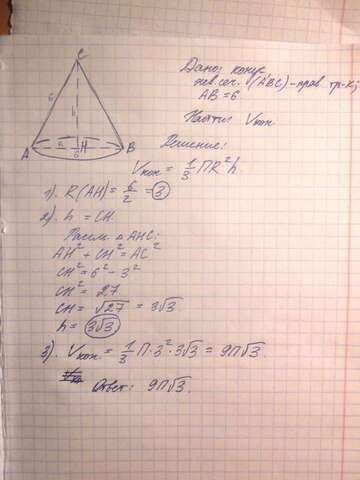 C
6
h
A
R
H
B
O
Дано: конус
сеч. (ABC) - прав. тр-к;
AB = 6.
Найти: Vкон
Решение:
Vкон = 1/3 ПR²h.
1). R(AH) = 6/2 = 3
2). h = CH.
Рассм. △AHC:
AH² + CH² = AC²
CH² = 6² - 3²
CH² = 27
CH = √27 = 3√3
h = 3√3
3). Vкон = 1/3 П·3²·3√3 = 9П√3.
Ответ: 9П√3.